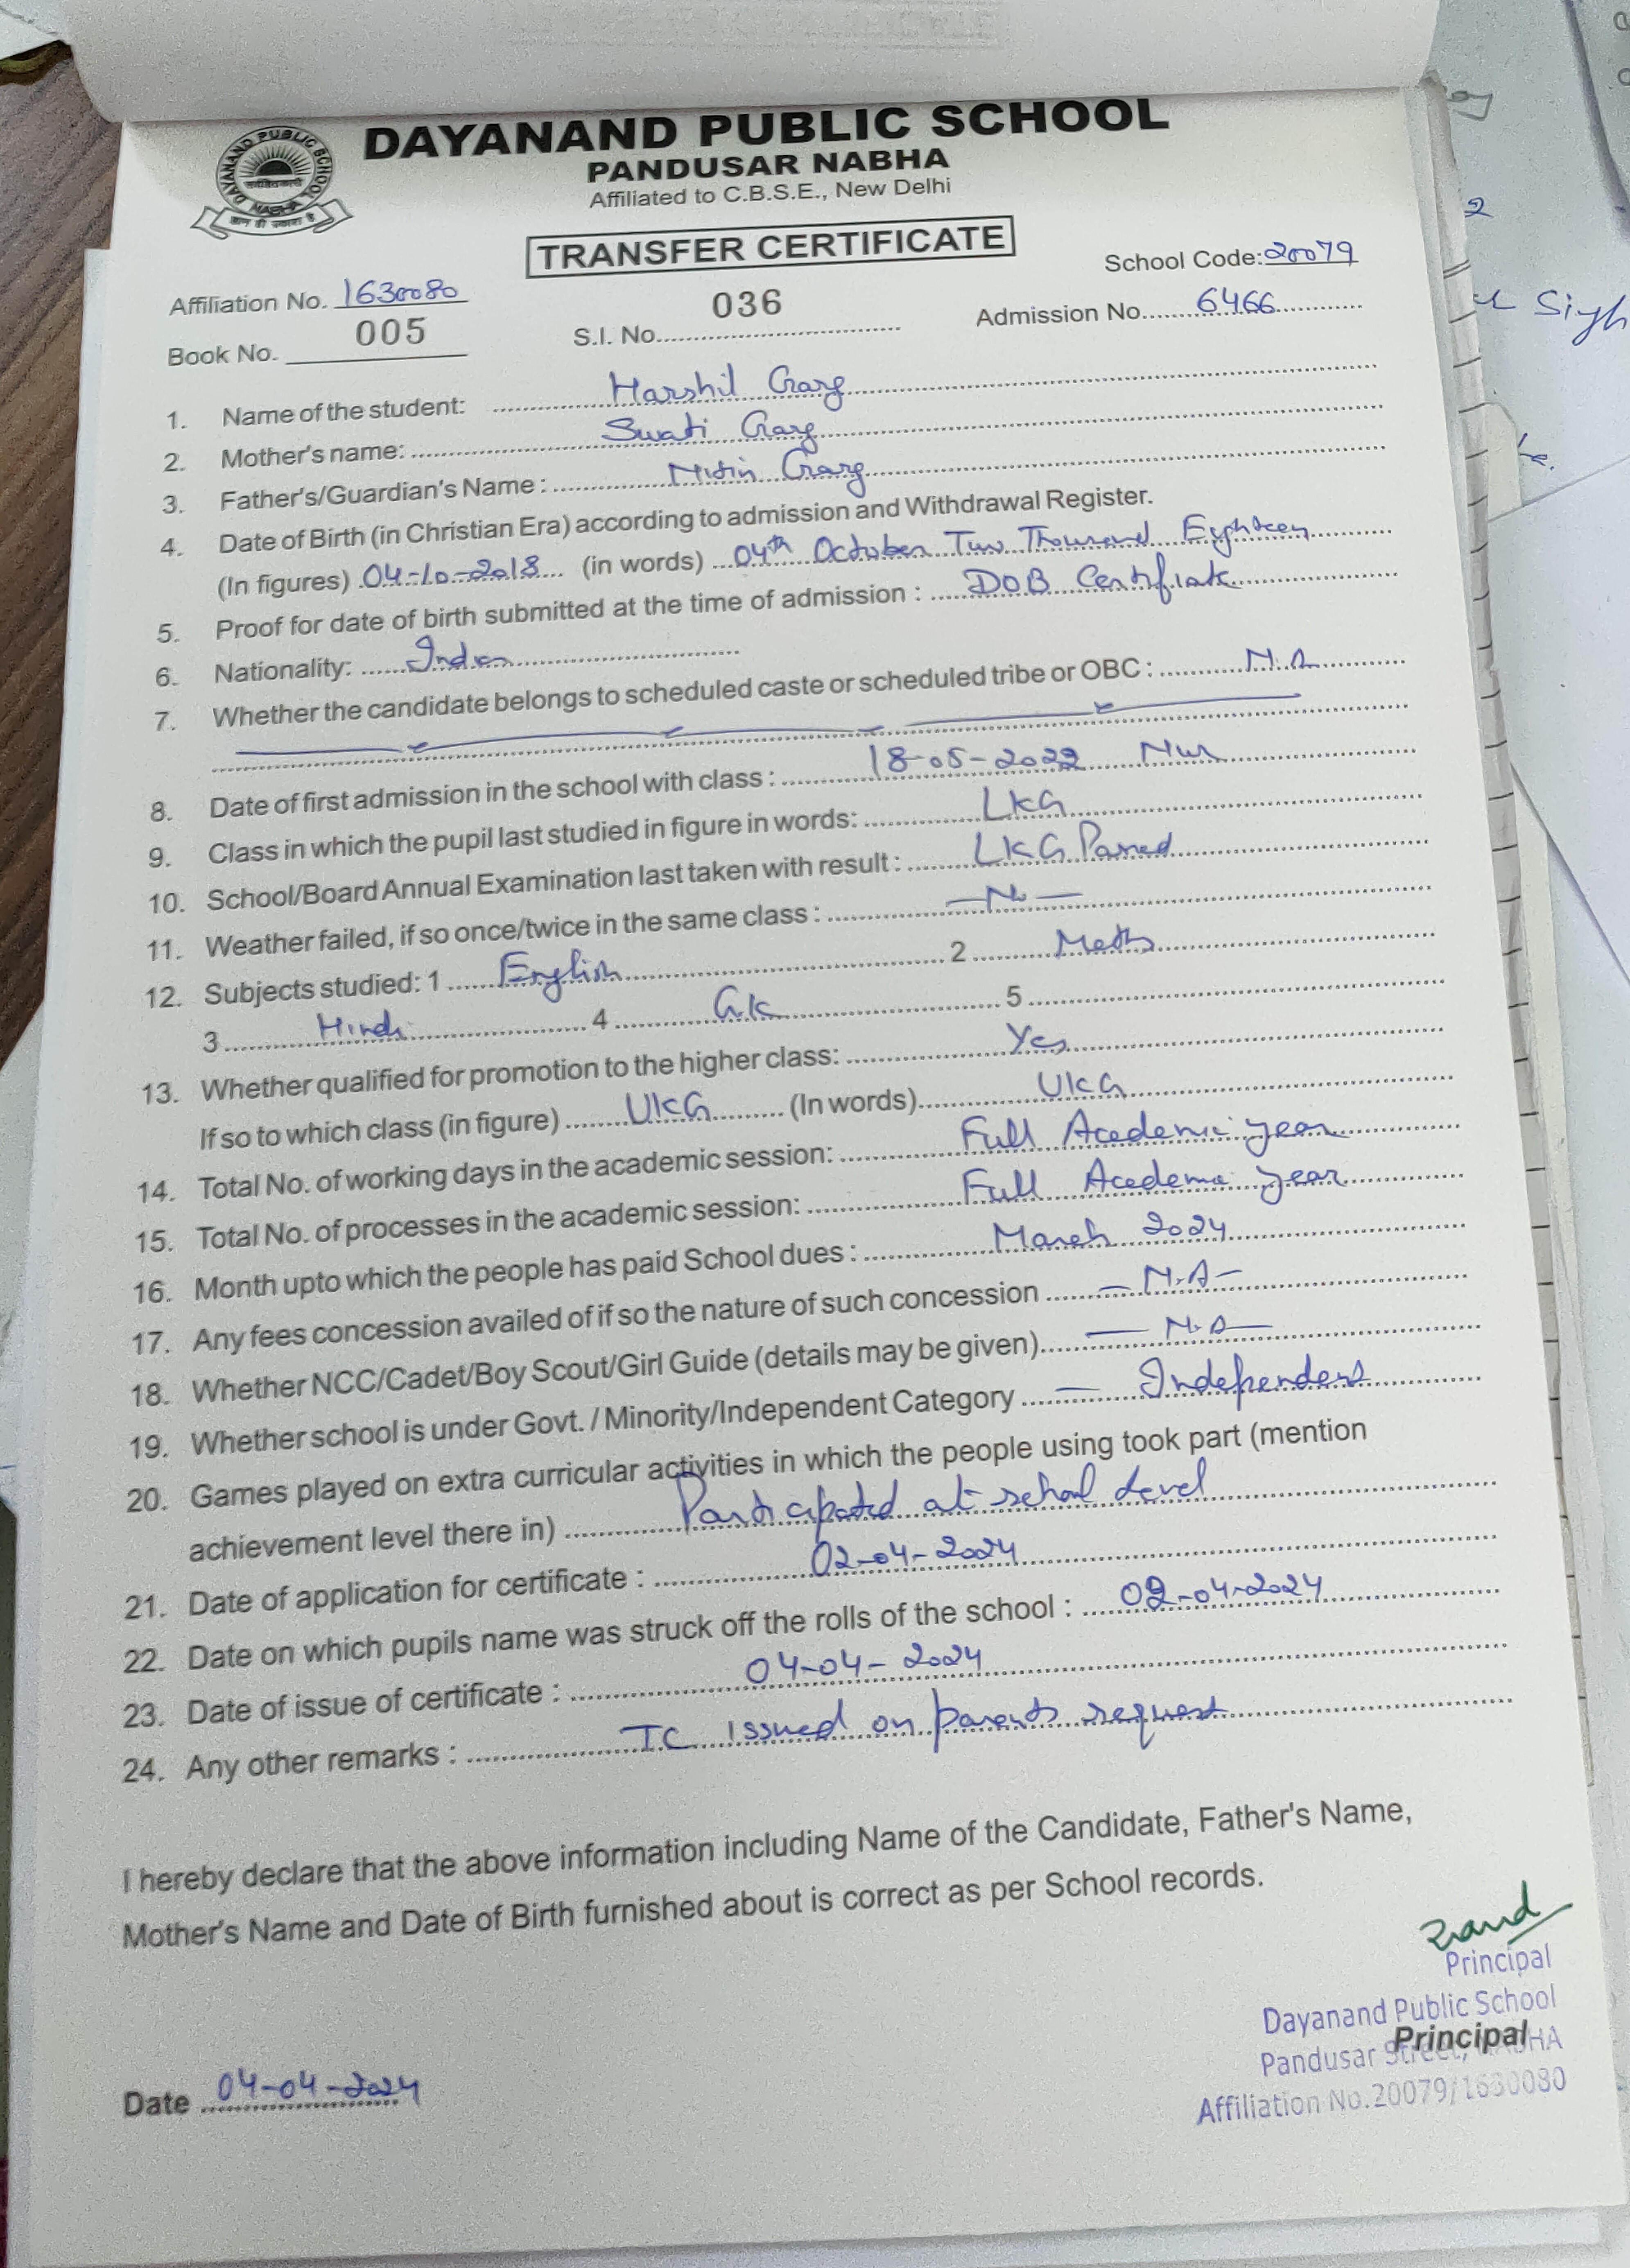 DAYANAND PUBLIC SCHOOL
PANDUSAR NABHA
Affiliated to C.B.S.E., New Delhi
DAYANAND PUBLIC SCHOOL
NABHA
TRANSFER CERTIFICATE
School Code: 20079
Affiliation No. 1630080
Book No. 005
S.I. No. 036
Admission No. 6466
1. Name of the student: Harshil Garg
2. Mother's name: Swati Garg
3. Father's/Guardian's Name : Nitin Garg
4. Date of Birth (in Christian Era) according to admission and Withdrawal Register.
(In figures) 04-10-2018 (in words) 04th October Two Thousand Eighteen
5. Proof for date of birth submitted at the time of admission : DOB Certificate
6. Nationality: Indian
7. Whether the candidate belongs to scheduled caste or scheduled tribe or OBC : N.A
8. Date of first admission in the school with class : 18-05-2022 Nur
9. Class in which the pupil last studied in figure in words: LKG
10. School/Board Annual Examination last taken with result : LKG Passed
11. Weather failed, if so once/twice in the same class : — No —
12. Subjects studied: 1 English 2 Maths
3 Hindi 4 G.K 5
13. Whether qualified for promotion to the higher class: Yes
If so to which class (in figure) UKG (In words) UKG
14. Total No. of working days in the academic session: Full Academic year
15. Total No. of processes in the academic session: Full Academic year
16. Month upto which the people has paid School dues : March 2024
17. Any fees concession availed of if so the nature of such concession — N.A —
18. Whether NCC/Cadet/Boy Scout/Girl Guide (details may be given) — N.A —
19. Whether school is under Govt. / Minority/Independent Category — Independent
20. Games played on extra curricular activities in which the people using took part (mention
achievement level there in) Participated at school level
21. Date of application for certificate : 02-04-2024
22. Date on which pupils name was struck off the rolls of the school : 02-04-2024
23. Date of issue of certificate : 04-04-2024
24. Any other remarks : TC Issued on parents request
I hereby declare that the above information including Name of the Candidate, Father's Name,
Mother's Name and Date of Birth furnished about is correct as per School records.
Principal
Dayanand Public School
Principal
Pandusar Street, NABHA
Affiliation No.20079/1630080
Date 04-04-2024